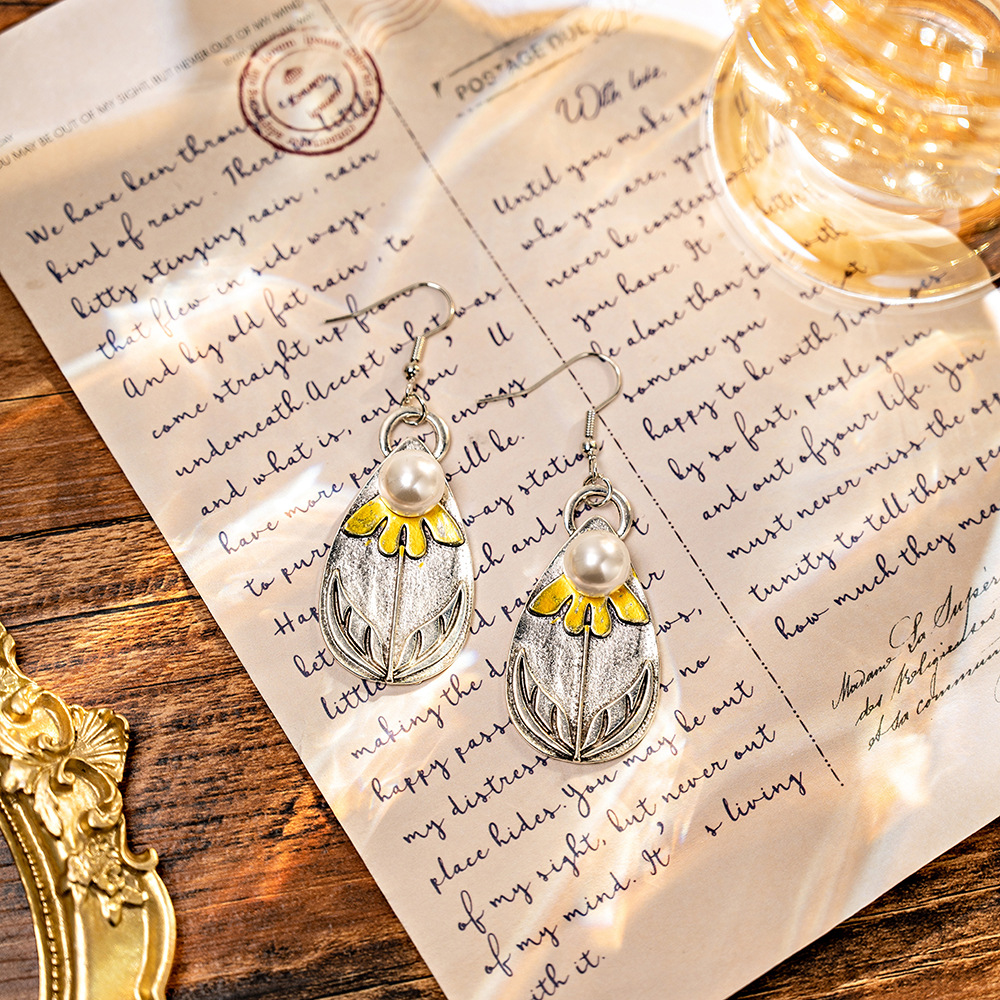 YOU MAY BE OUT OF MY SIGHT, BUT NEVER OUT OF MY MIND
We have been throu
kind of rain. There
bitty stinging rain, rain
that flew in side ways.
And big old fat rain, to
come straight up from
underneath. Accept what was
and what is, and you ll
have more po energy
to pur will be.
Hap way station
bet ch and
little d par
making the d ws,
happy pass s no
my distress
place hides. You may be out
of my sight, but never out
of my mind. It's living
with it.
POSTAGE DUE
With love,
Until you make pe
who you are, you
never be content with
you have. It
be alone than to with
someone you not
happy to be with. Time goes
by so fast, people go in
and out ofyour life. You
must never miss the opp
tunity to tell these pe
how much they mea
Madame La Supér
des Religieu
et la commun